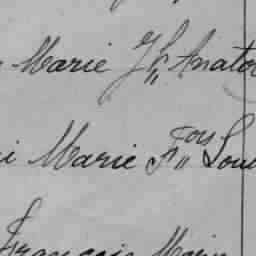 Marie Jh Anato
i Marie Fois Loui
François Marie